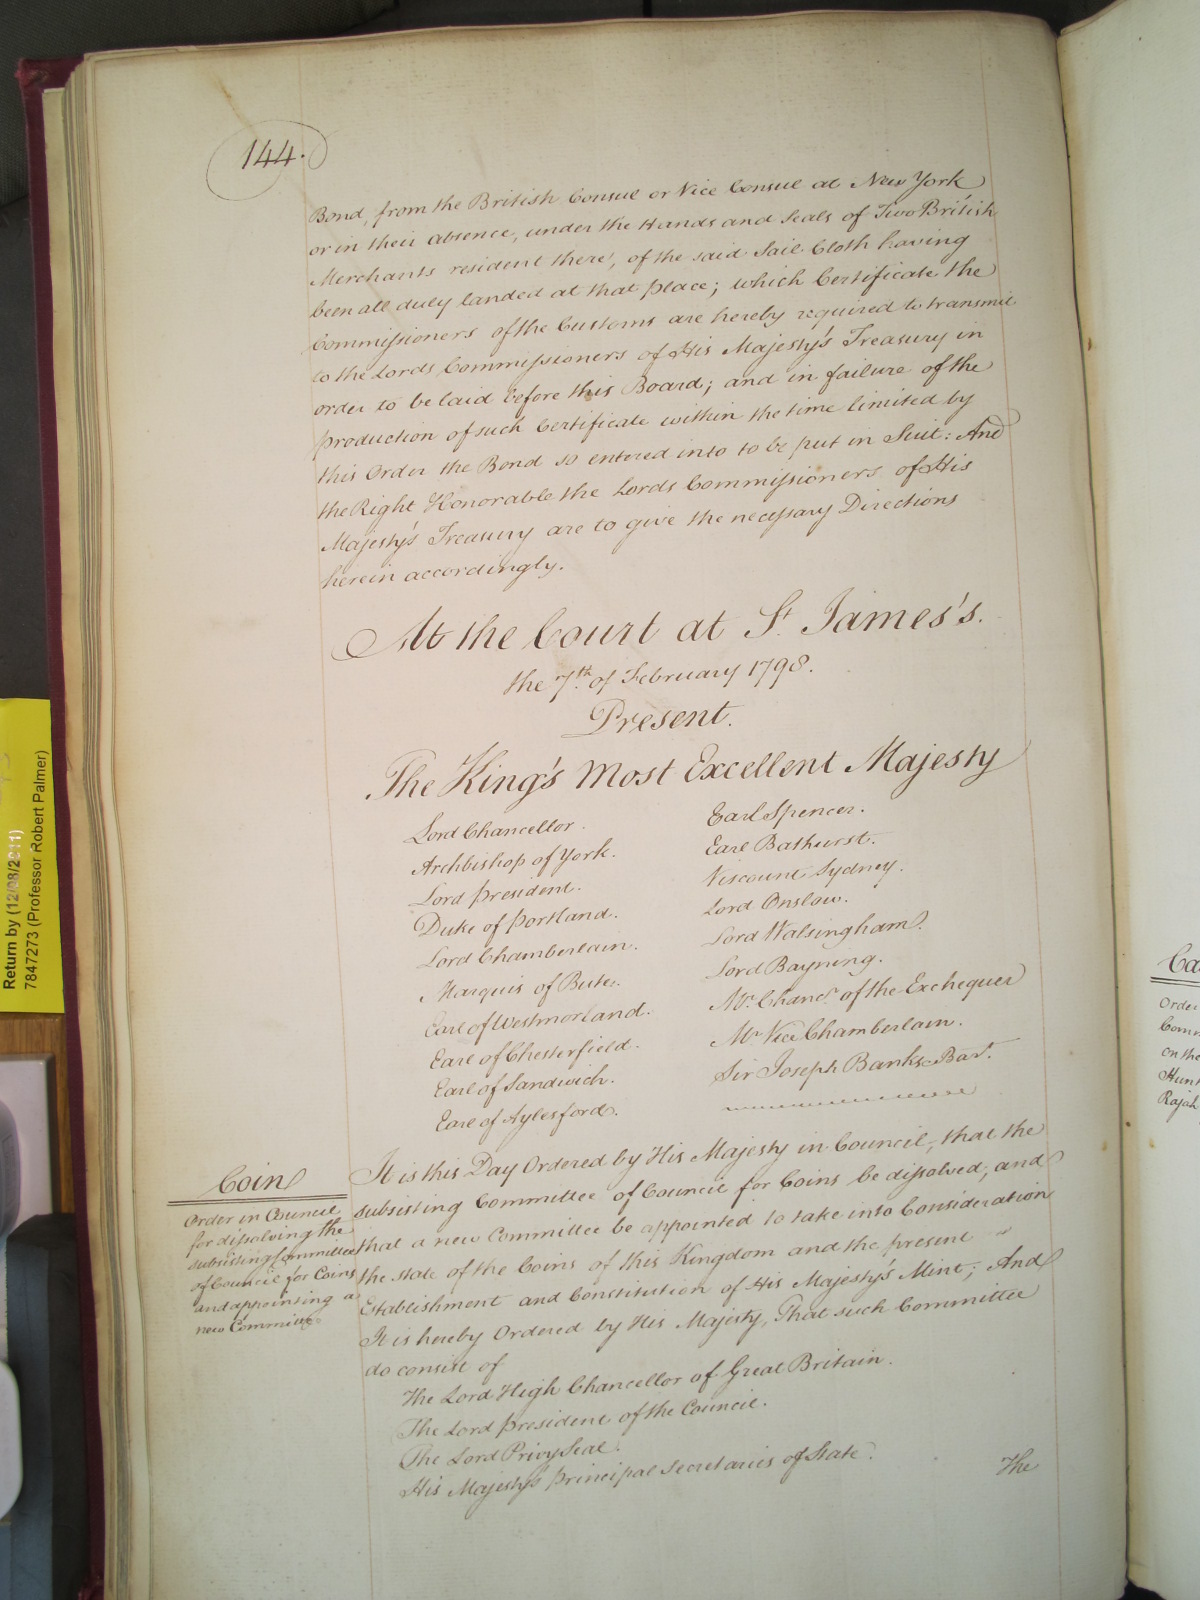 144.
Bond, from the British Consul or Vice Consul at New York
or in their absence, under the Hands and Seals of Two British
Merchants resident there, of the said Sail Cloth having
been all duly landed at that place; which Certificate the
Commissioners of the Customs are hereby required to transmit
to the Lords Commissioners of His Majesty's Treasury in
order to be laid before this Board; and in failure of the
production of such Certificate within the time limited by
this Order the Bond so entered into to be put in Suit: And
the Right Honorable the Lords Commissioners of His
Majesty's Treasury are to give the necessary Directions
herein accordingly.
At the Court at St. James's.
the 7th. of February 1798.
Present.
The King's Most Excellent Majesty
Lord Chancellor.
Archbishop of York.
Lord President.
Duke of Portland.
Lord Chamberlain.
Marquis of Bute.
Earl of Westmorland.
Earl of Chesterfield.
Earl of Sandwich.
Earl of Aylesford.
Earl Spencer.
Earl Bathurst.
Viscount Sydney.
Lord Onslow.
Lord Walsingham.
Lord Bayning.
Mr. Chancr. of the Exchequer
Mr. Vice Chamberlain.
Sir Joseph Banks Bart.
Coin
Order in Council
for dissolving the
subsisting Committee
of Council for Coins
and appointing a
new Committee
It is this Day Ordered by His Majesty in Council, that the
subsisting Committee of Council for Coins be dissolved, and
that a new Committee be appointed to take into Consideration
the state of the Coins of this Kingdom and the present
Establishment and Constitution of His Majesty's Mint; And
It is hereby Ordered by His Majesty, That such Committee
do consist of
The Lord High Chancellor of Great Britain.
The Lord President of the Council.
The Lord Privy Seal.
His Majesty's Principal Secretaries of State.
The
Return by (12/08/2011)
7847273 (Professor Robert Palmer)
Order
on the
Rajah